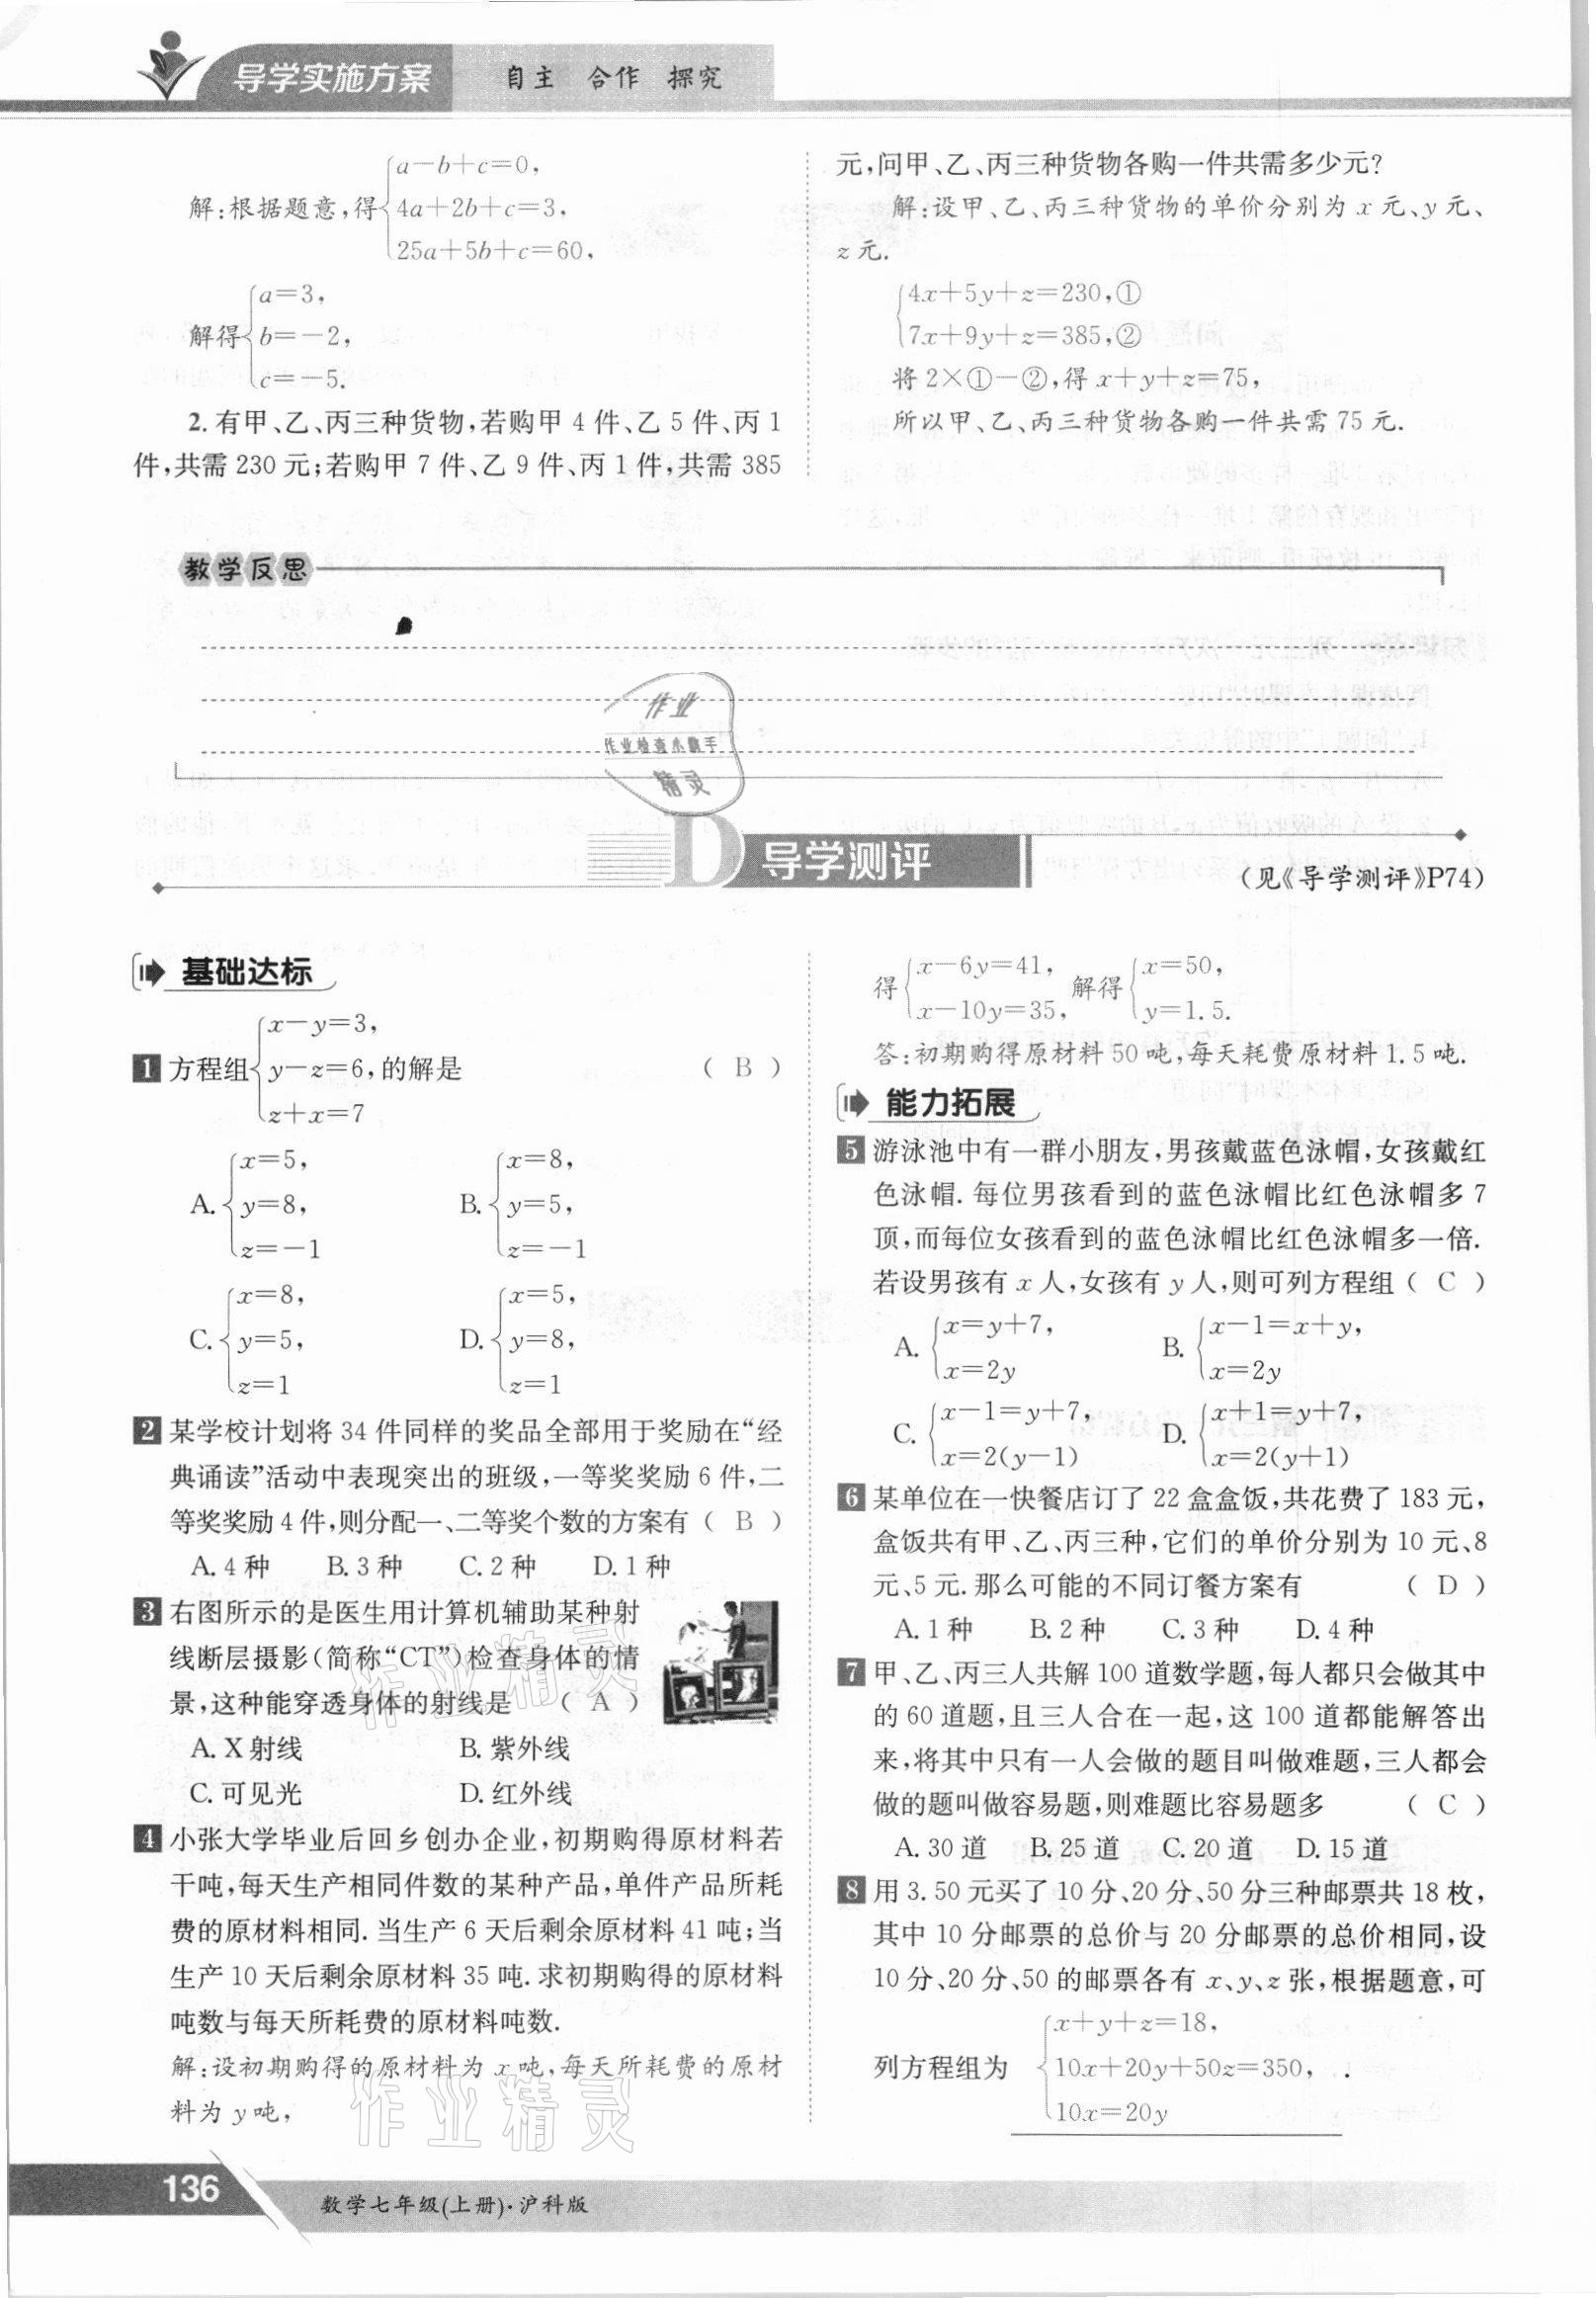 导学实施方案
自主 合作 探究
解:根据题意,得{a-b+c=0,
4a+2b+c=3,
25a+5b+c=60,
解得{a=3,
b=-2,
c=-5.
2.有甲、乙、丙三种货物,若购甲 4 件、乙 5 件、丙 1
件,共需 230 元;若购甲 7 件、乙 9 件、丙 1 件,共需 385
元,问甲、乙、丙三种货物各购一件共需多少元?
解:设甲、乙、丙三种货物的单价分别为 x 元、y 元、
z 元.
{4x+5y+z=230,①
7x+9y+z=385,②
将 2×①-②,得 x+y+z=75,
所以甲、乙、丙三种货物各购一件共需 75 元.
教学反思
作业
作业检查小帮手
精灵
D 导学测评
(见《导学测评》P74)
基础达标
1 方程组{x-y=3,
y-z=6,的解是 ( B )
z+x=7
A.{x=5,
y=8,
z=-1
B.{x=8,
y=5,
z=-1
C.{x=8,
y=5,
z=1
D.{x=5,
y=8,
z=1
2 某学校计划将 34 件同样的奖品全部用于奖励在“经
典诵读”活动中表现突出的班级,一等奖奖励 6 件,二
等奖奖励 4 件,则分配一、二等奖个数的方案有 ( B )
A.4 种 B.3 种 C.2 种 D.1 种
3 右图所示的是医生用计算机辅助某种射
线断层摄影(简称“CT”)检查身体的情
景,这种能穿透身体的射线是 ( A )
A.X 射线 B.紫外线
C.可见光 D.红外线
4 小张大学毕业后回乡创办企业,初期购得原材料若
干吨,每天生产相同件数的某种产品,单件产品所耗
费的原材料相同.当生产 6 天后剩余原材料 41 吨;当
生产 10 天后剩余原材料 35 吨.求初期购得的原材料
吨数与每天所耗费的原材料吨数.
解:设初期购得的原材料为 x 吨,每天所耗费的原材
料为 y 吨,
得{x-6y=41,
x-10y=35, 解得{x=50,
y=1.5.
答:初期购得原材料 50 吨,每天耗费原材料 1.5 吨.
能力拓展
5 游泳池中有一群小朋友,男孩戴蓝色泳帽,女孩戴红
色泳帽.每位男孩看到的蓝色泳帽比红色泳帽多 7
顶,而每位女孩看到的蓝色泳帽比红色泳帽多一倍.
若设男孩有 x 人,女孩有 y 人,则可列方程组 ( C )
A.{x=y+7,
x=2y
B.{x-1=x+y,
x=2y
C.{x-1=y+7,
x=2(y-1)
D.{x+1=y+7,
x=2(y+1)
6 某单位在一快餐店订了 22 盒盒饭,共花费了 183 元,
盒饭共有甲、乙、丙三种,它们的单价分别为 10 元、8
元、5 元.那么可能的不同订餐方案有 ( D )
A.1 种 B.2 种 C.3 种 D.4 种
7 甲、乙、丙三人共解 100 道数学题,每人都只会做其中
的 60 道题,且三人合在一起,这 100 道都能解答出
来,将其中只有一人会做的题目叫做难题,三人都会
做的题叫做容易题,则难题比容易题多 ( C )
A.30 道 B.25 道 C.20 道 D.15 道
8 用 3.50 元买了 10 分、20 分、50 分三种邮票共 18 枚,
其中 10 分邮票的总价与 20 分邮票的总价相同,设
10 分、20 分、50 的邮票各有 x、y、z 张,根据题意,可
列方程组为 {x+y+z=18,
10x+20y+50z=350, .
10x=20y
作业精灵
作业精灵
136
数学七年级(上册)·沪科版